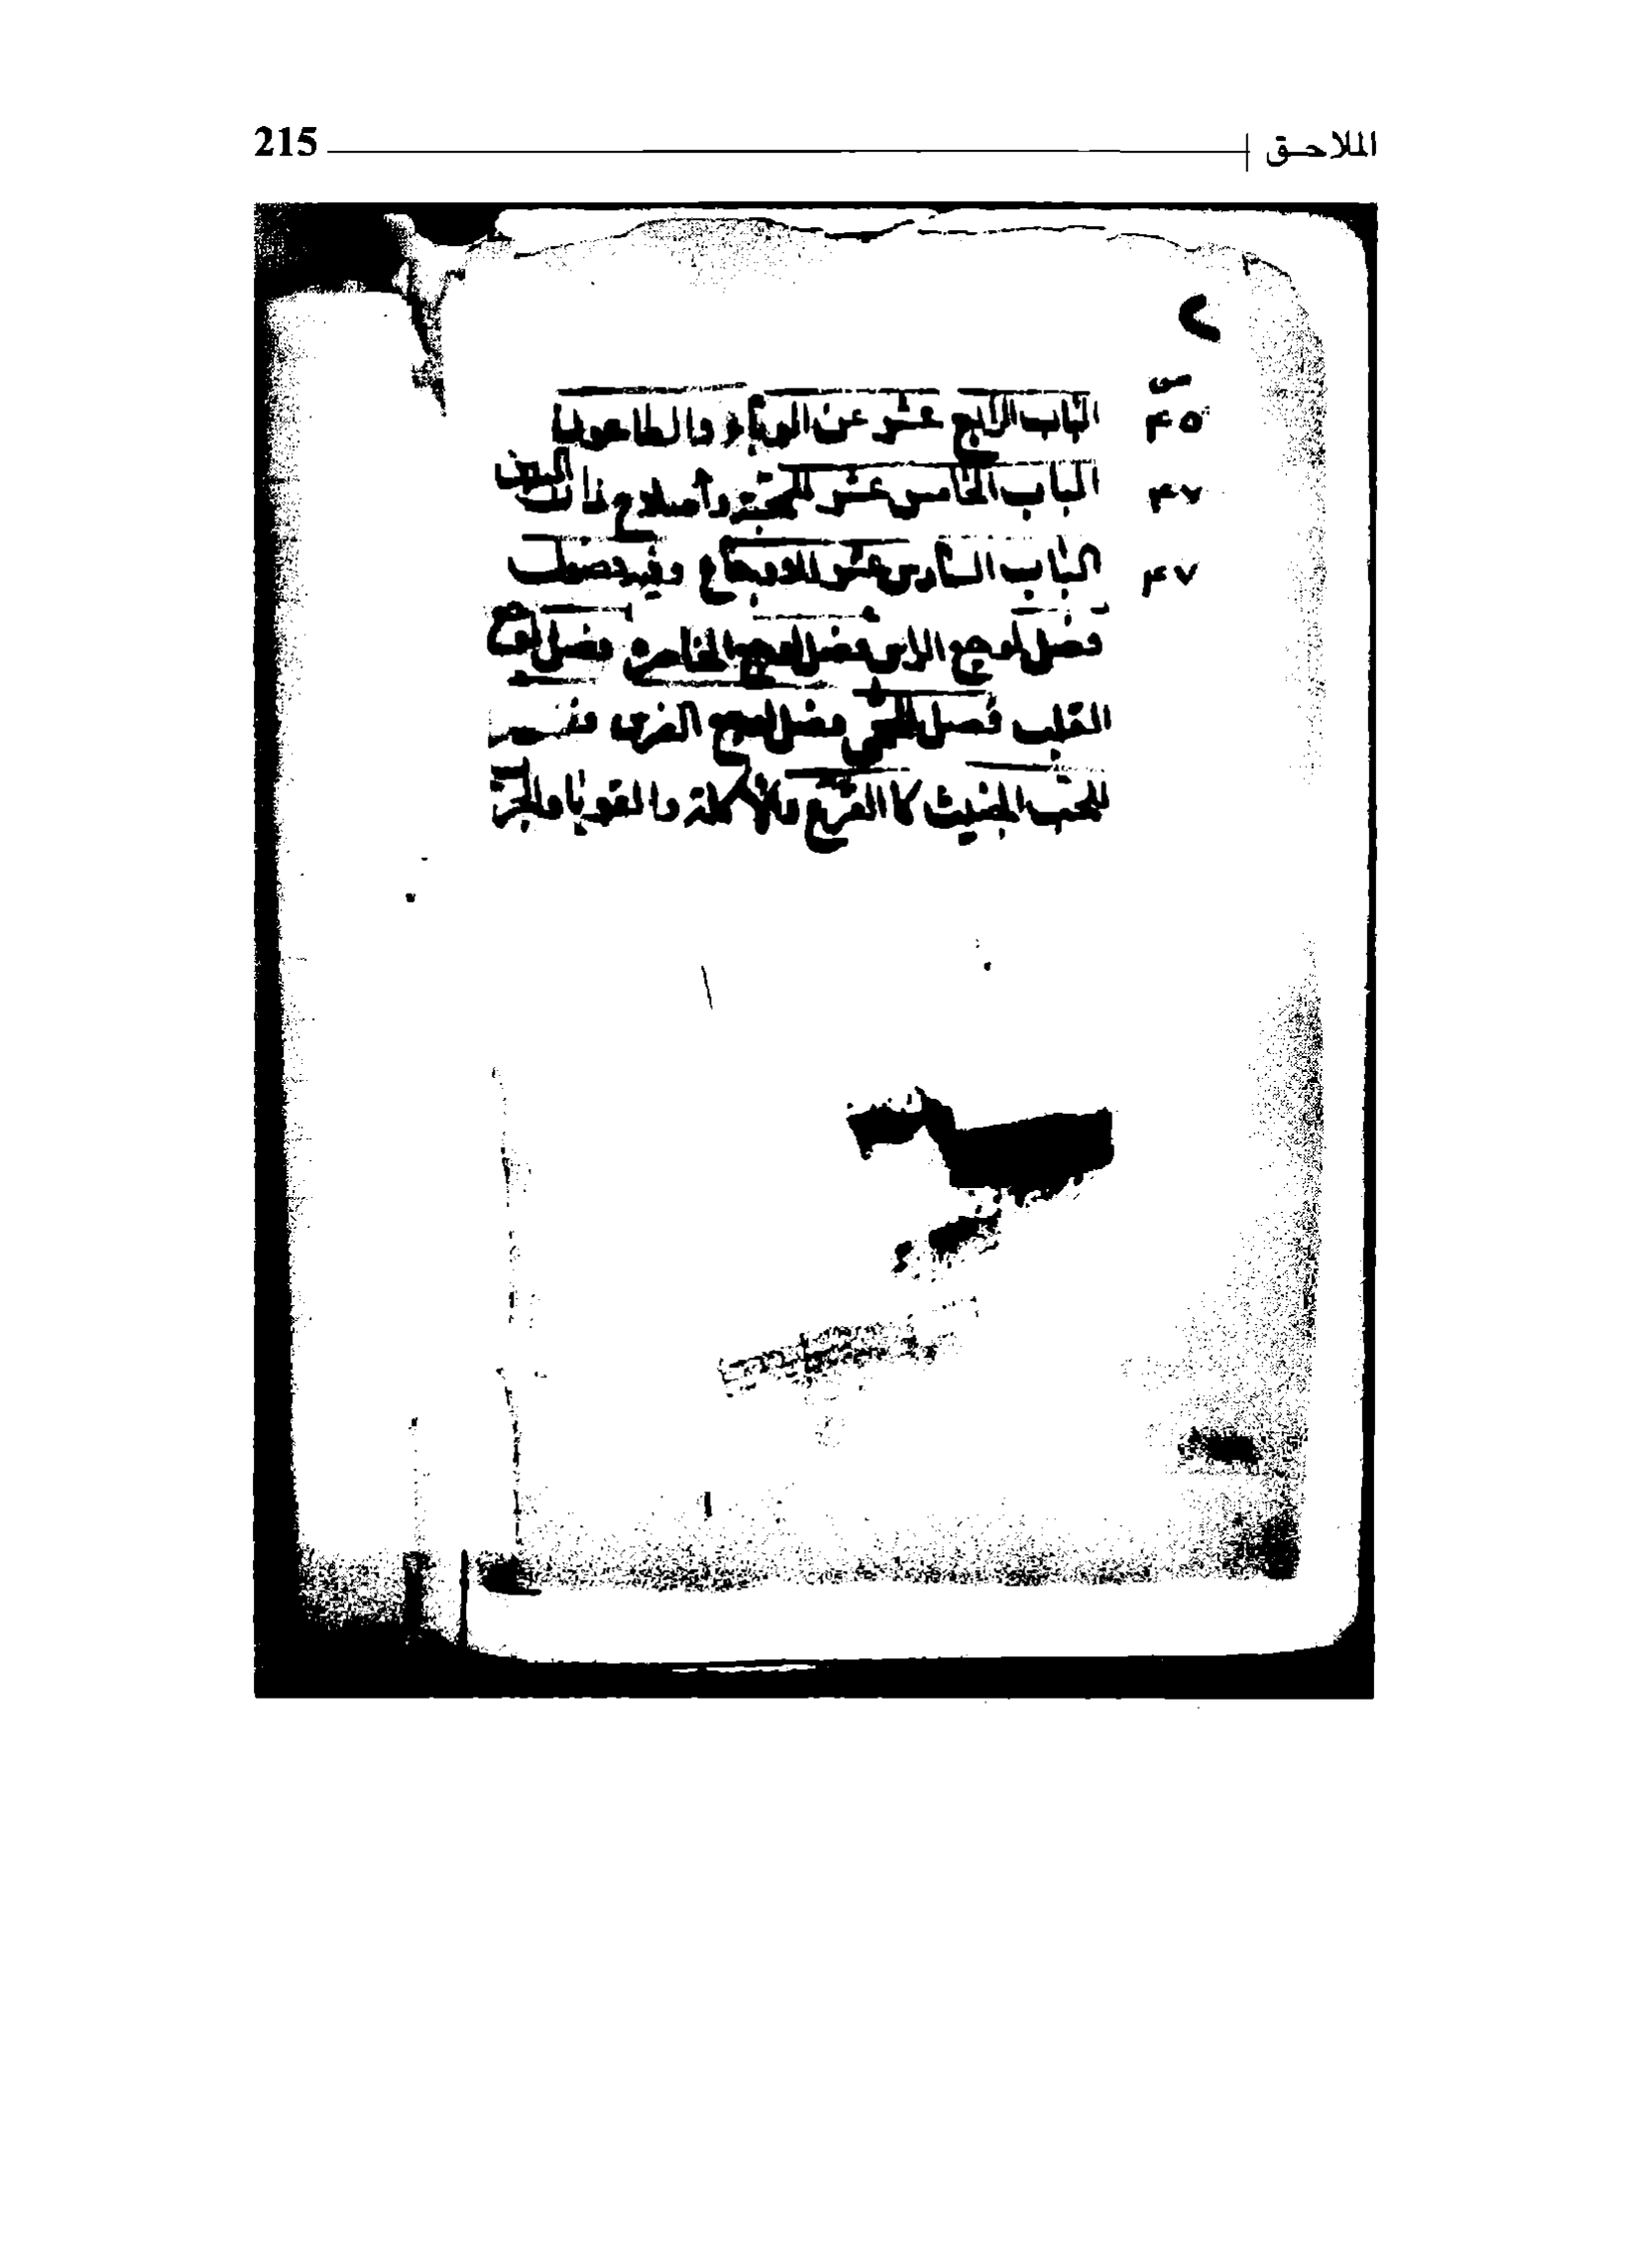 الملاحق 215
٢
ص
٤٥ الباب الرابع عشر عن الوباء والطاعون
٤٧ الباب الخامس عشر للمحبة وأصلاح ذات البين
٤٧ الباب السادس عشر للاوجاع وفيه فصول
فصل لوجع الراس فصل لوجع الخاصرة فصل لوجع
القلب فصل للحمى فصل لوجع الضرس
للحب الخبيث كالقرع والأكلة والقوبا والجرب